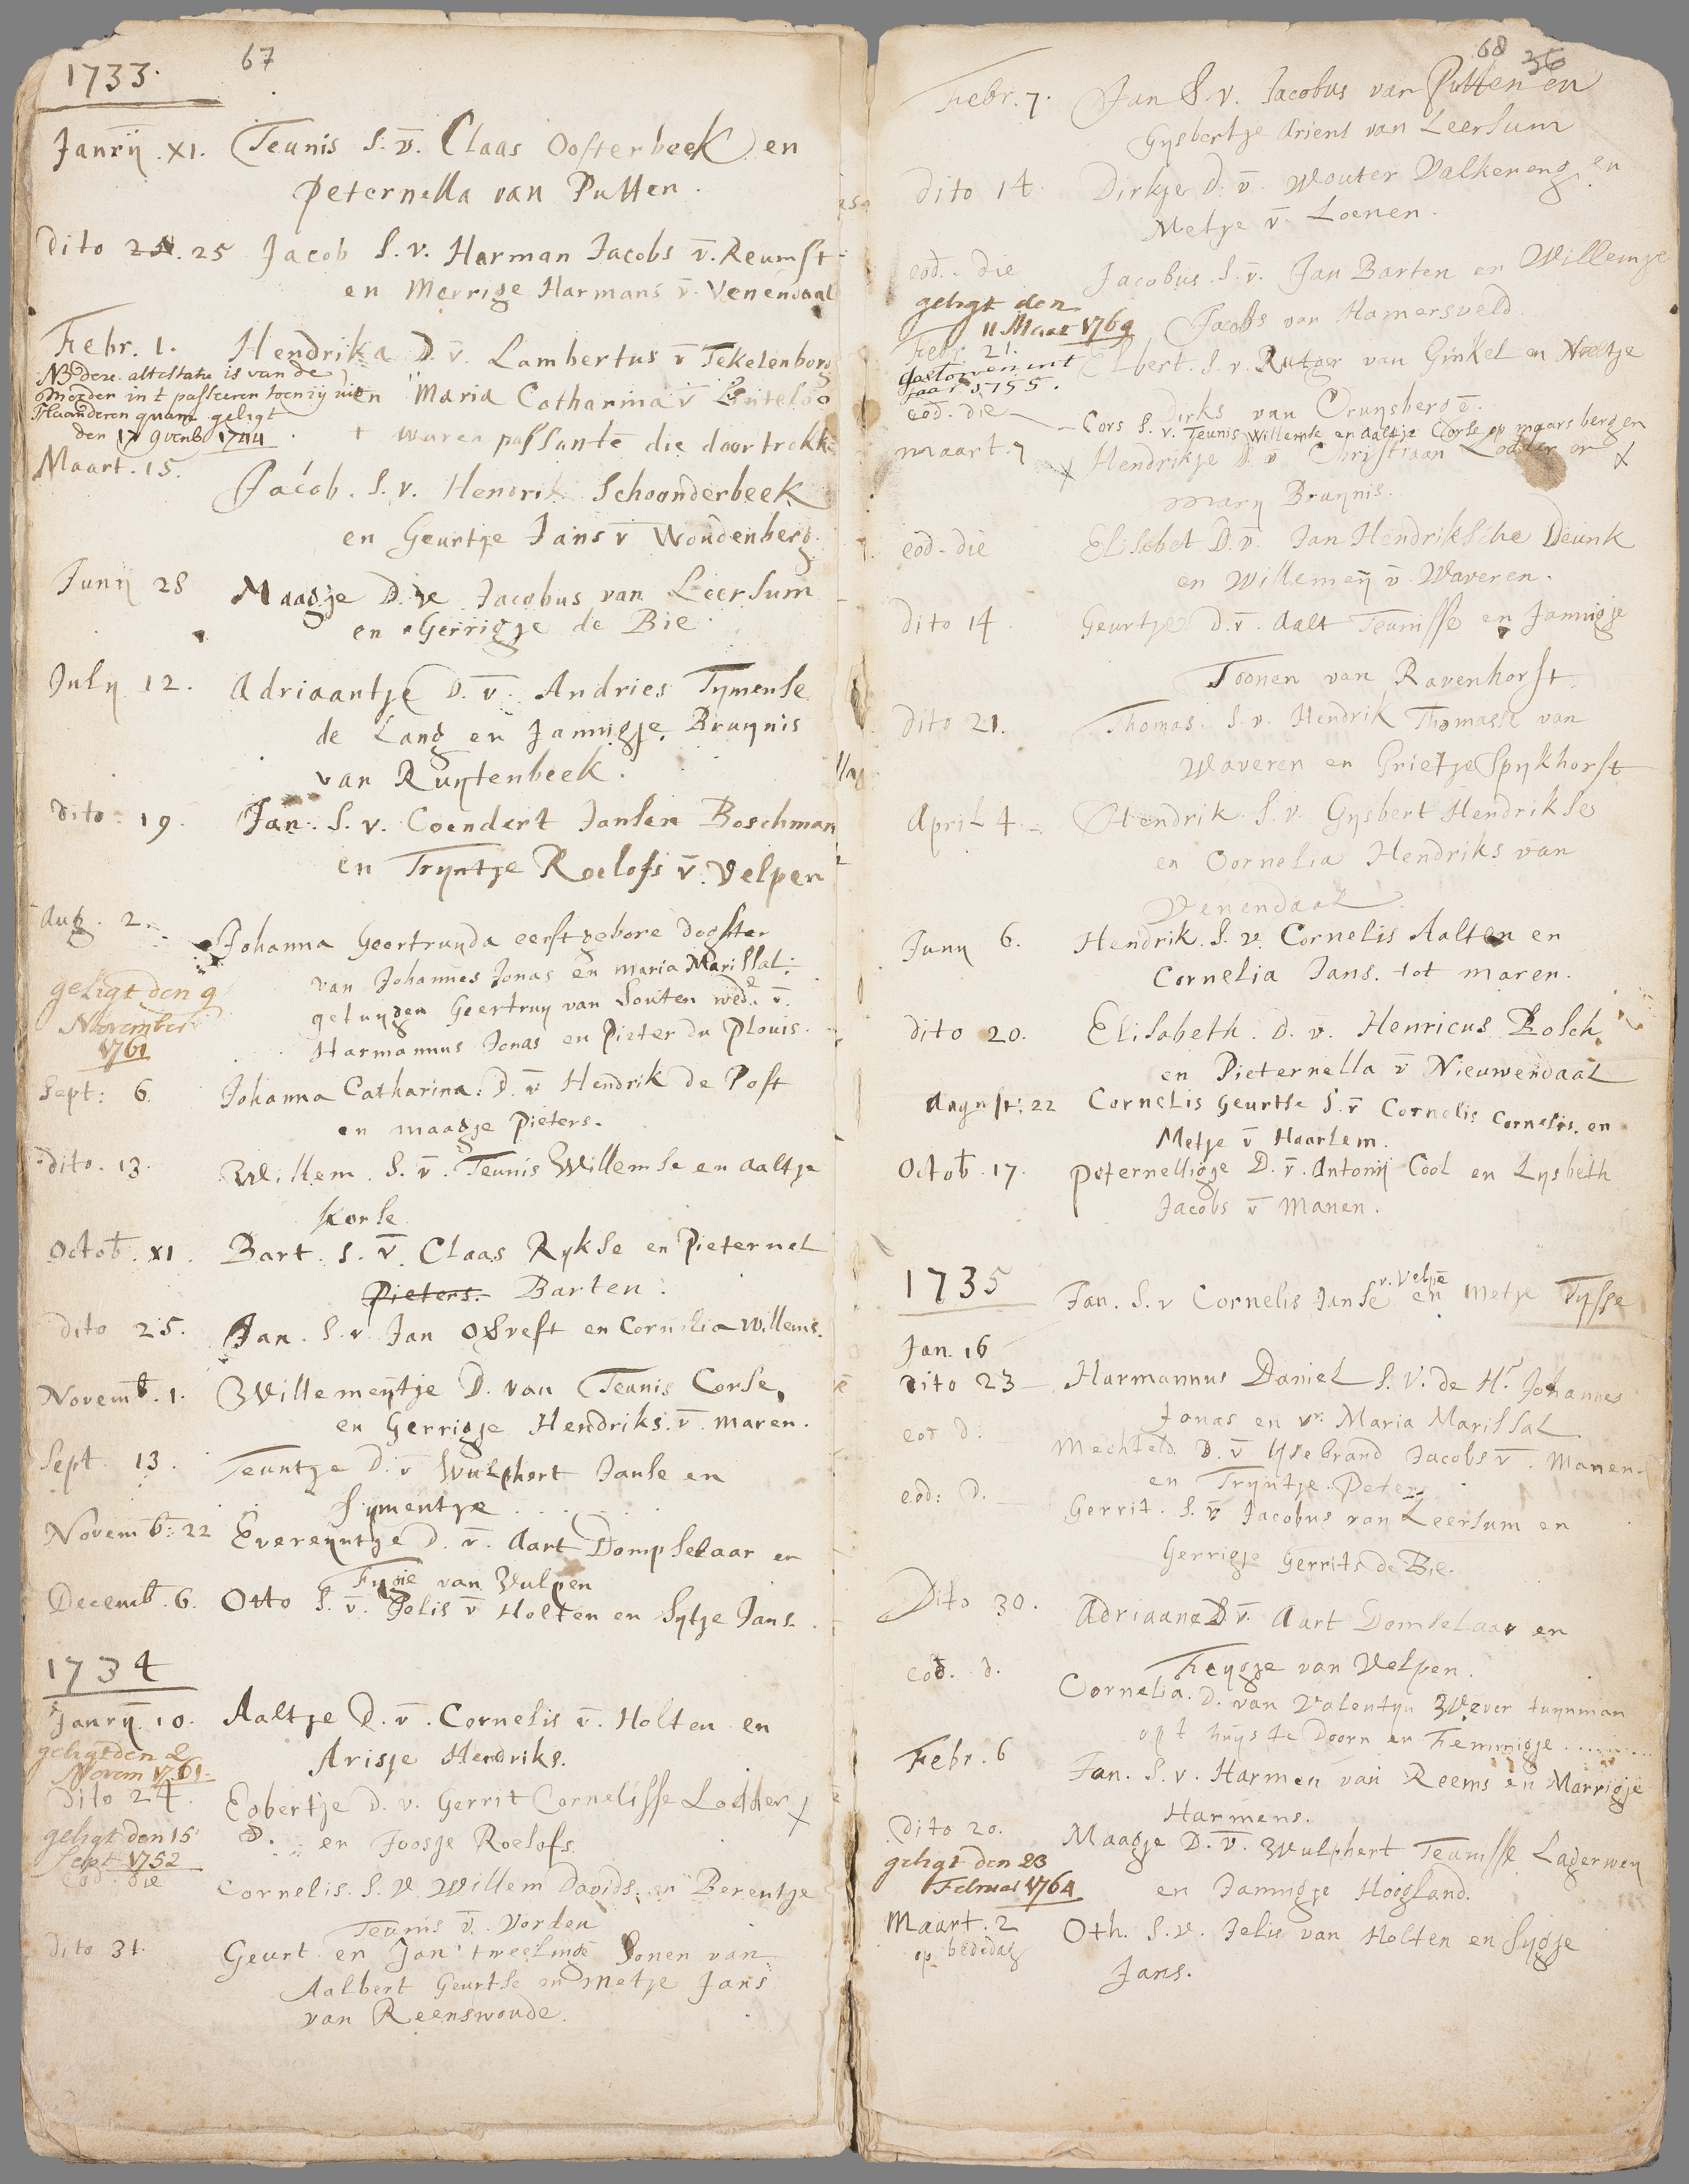 67
1733.
Janrij. XI. Teunis S. v̄. Claas Oosterbeek en
Peternella van Putten.
Dito 25 Jacob S. v. Harman Jacobs v̄. Reumst
en Merrige Harmans v̄. Venendaal
Febr. 1. Hendrika D. v̄. Lambertus v̄ Tekelenborg
NB dese attestatie is van de
en Maria Catharina v̄ Linteloo
moeder in t passeren toen zij uit
Vlaanderen quam geligt
den 17 9vemb 1744
+ waren passante die doortrokke
Maart. 15.
Jacob. S. v. Hendrik Schoonderbeek
en Geurtje Jans v̄ Woudenberg.
Junij 28 Maagje D. v̄ Jacobus van Leersum
en Gerrigje de Bie.
July 12. Adriaantje D. v̄. Andries Tymense
de Lang en Jannigje Bruynis
van Ruytenbeek.
Dito. 19. Jan. S. v. Coendert Jansen Boschman
en Tryntje Roelofs v̄. Velpen
Aug. 2. Johanna Geertruyda eerstgebore doghter
van Johannes Jonas en Maria Marissal.
geligt den 9
November
1761
getuygen Geertruy van Souten wede. v̄.
Harmannus Jonas en Pieter du Plouis.
Sept: 6. Johanna Catharina. D. v̄ Hendrik de Post
en maagje Pieters.
Dito. 13. Willem. S. v̄. Teunis Willemse en Aaltje
Korse
Octob. XI. Bart. S. v̄. Claas Rykse en Pieternel
Pieters. Barten.
Dito 25. Jan. S. v. Jan Obrest en Cornelia Willems.
Novemb. 1. Willemeijtje D. van Teunis Corse,
en Gerrigje Hendriks. v̄. maren.
Sept. 13. Teuntje D. v̄ Wulphert Janse en
Symentje . . . .
Novemb: 22 Evereyntje D. v̄. Aart Dompselaar en
Fygie van Vulpen
Decemb. 6. Otto S. v̄. Jelis v̄ Holten en Sytje Jans.
1734
Janrij. 10. Aaltje D. v̄. Cornelis v̄. Holten en
geligt den 2
Novem 1761.
Arisje Hendriks.
Dito 24. Egbertje D. v. Gerrit Cornelisse Lodder X
geligt den 15
Sept 1752
en Joosje Roelofs.
eod. die Cornelis. S. v. Willem Davids. en Berentje
Teunis v̄. Vorden
Dito 31. Geurt en Jan tweelinge Sonen van
Aalbert Geurtse en Metje Jans
van Reenswoude.
68 36
Febr. 7. Jan S. v. Jacobus van Putten en
Gysbertje Ariens van Leersum
Dito 14. Dirkje D. v̄. Wouter Valkeneng en
Metje v̄. Loenen.
eod. die Jacobus. S. v̄. Jan Barten en Willemje
geligt den
11 Maar 1769
Jacobs van Hamersveld.
Febr. 21. Elbert. S. v. Rutger van Ginkel en Neeltje
gestorven int
jaar 1755.
Dirks van Cruysberg.
eod. die Cors S. v. Teunis Willemse en Aaltje Corse op maarsbergen
maart. 7 X Hendrikje D. v̄ Christiaan Lodder en X
Mary Bruynis.
eod. die Elisabet D. v̄. Jan Hendriksche Deunk
en Willemeij v̄. Waveren.
Dito 14. Geurtje D. v̄. Aalt Teunisse en Jannigje
Toonen van Ravenhorst.
Dito 21. Thomas. S. v. Hendrik Thomasse van
Waveren en Grietje Spykhorst
April 4. Hendrik S. v. Gysbert Hendrikse
en Cornelia Hendriks van
Venendaal.
Juny 6. Hendrik. S. v. Cornelis Aalten en
Cornelia Jans. tot maren.
Dito 20. Elisabeth. D. v̄. Henricus Bosch
en Pieternella v̄ Nieuwendaal
Augustt: 22 Cornelis Geurtse S. v̄ Cornelis Cornelis. en
Metje v̄ Haarlem.
Octob. 17. Peternelligje D. v̄. Antonij Cool en Lysbeth
Jacobs v̄ Manen.
1735
v. Velpē
Jan. S. v Cornelis Janse en Metje Tysse
Jan. 16
Dito 23 Harmannus Daniel S. V. de Hr. Johannes
Jonas en vr. Maria Marissal.
eod d. Mechteld D. v̄ Ysebrand Jacobs v̄. Manen
en Tryntje Peters
eod: d. Gerrit. S. v̄ Jacobus van Leersum en
Gerrigje Gerrits de Bie.
Dito 30. Adriaane D v̄. Aart Domselaar en
Feygje van Velpen.
eod. d. Cornelia. D. van Valentyn Wever tuynman
op t huys te Doorn en Femmigje ........
Febr. 6 Jan. S. v. Harmen van Reems en Marrigje
Harmens.
Dito 20. Maagje D. v̄. Wulphert Teunisse Lagerwey
geligt den 23
Februar 1764
en Jannigje Hoogland.
Maart. 2 Oth. S. v. Jelis van Holten en Sygje
op bededag
Jans.